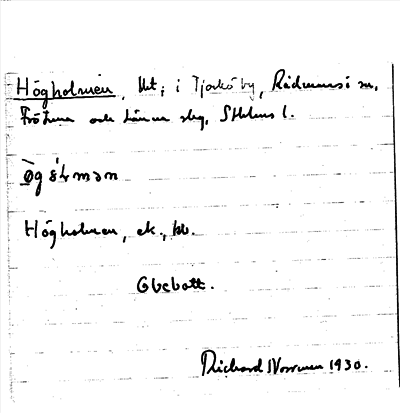 Högholmen, Ut, i Tjorkö by, Rådmansö sn,
Frötuna och Länna skg, Sthlms l.
Högholmen, ek., kb.
Obebott.
Richard Norrman 1930.